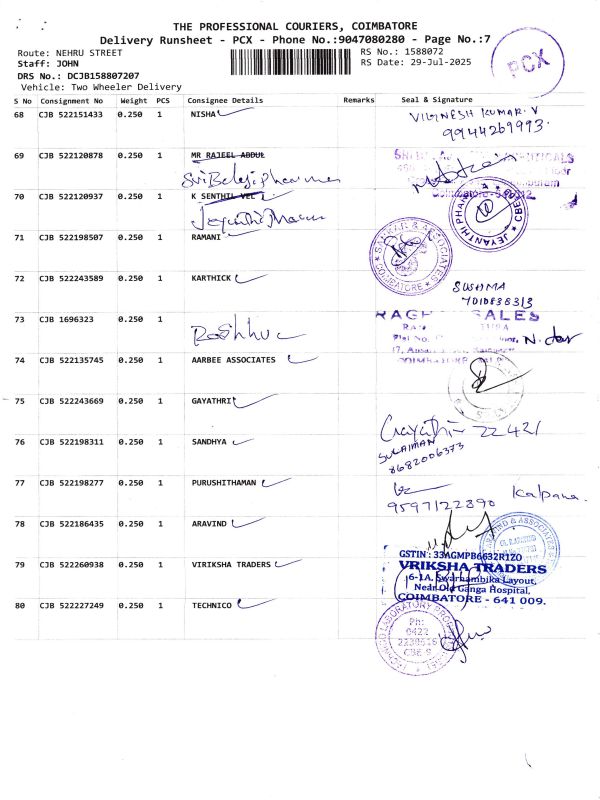 THE PROFESSIONAL COURIERS, COIMBATORE
Delivery Runsheet - PCX - Phone No.:9047080280 - Page No.:7
PCX
Route: NEHRU STREET
RS No.: 1588072
Staff: JOHN
RS Date: 29-Jul-2025
DRS No.: DCJB158807207
Vehicle: Two Wheeler Delivery
S No Consignment No Weight PCS Consignee Details Remarks Seal & Signature
68 CJB 522151433 0.250 1 NISHA VIGNESH KUMAR. V
9944269993.
69 CJB 522120878 0.250 1 MR RAJEEL ABDUL
Sri Balaji pharma
70 CJB 522120937 0.250 1 K SENTHIL VEL
Jeyanthi Pharma
JEYANTHI PHARMA
71 CJB 522198507 0.250 1 RAMANI
& ASSOCIATES
COIMBATORE
72 CJB 522243589 0.250 1 KARTHICK
SUSHMA
7010838313
73 CJB 1696323 0.250 1
RAGH SALES
74 CJB 522135745 0.250 1 AARBEE ASSOCIATES
75 CJB 522243669 0.250 1 GAYATHRI
Gayathri 22421
76 CJB 522198311 0.250 1 SANDHYA
SULAIMAN
8682006373
77 CJB 522198277 0.250 1 PURUSHITHAMAN
9597122890 Kalpana.
78 CJB 522186435 0.250 1 ARAVIND
& ASSOCIATES
79 CJB 522260938 0.250 1 VIRIKSHA TRADERS
GSTIN: 33AGMPB6632R1Z0
VRIKSHA TRADERS
6-1A, Swarnambika Layout,
Near Old Ganga Hospital,
COIMBATORE - 641 009.
80 CJB 522227249 0.250 1 TECHNICO
LABORATORY
Ph:
0422
CBE 9